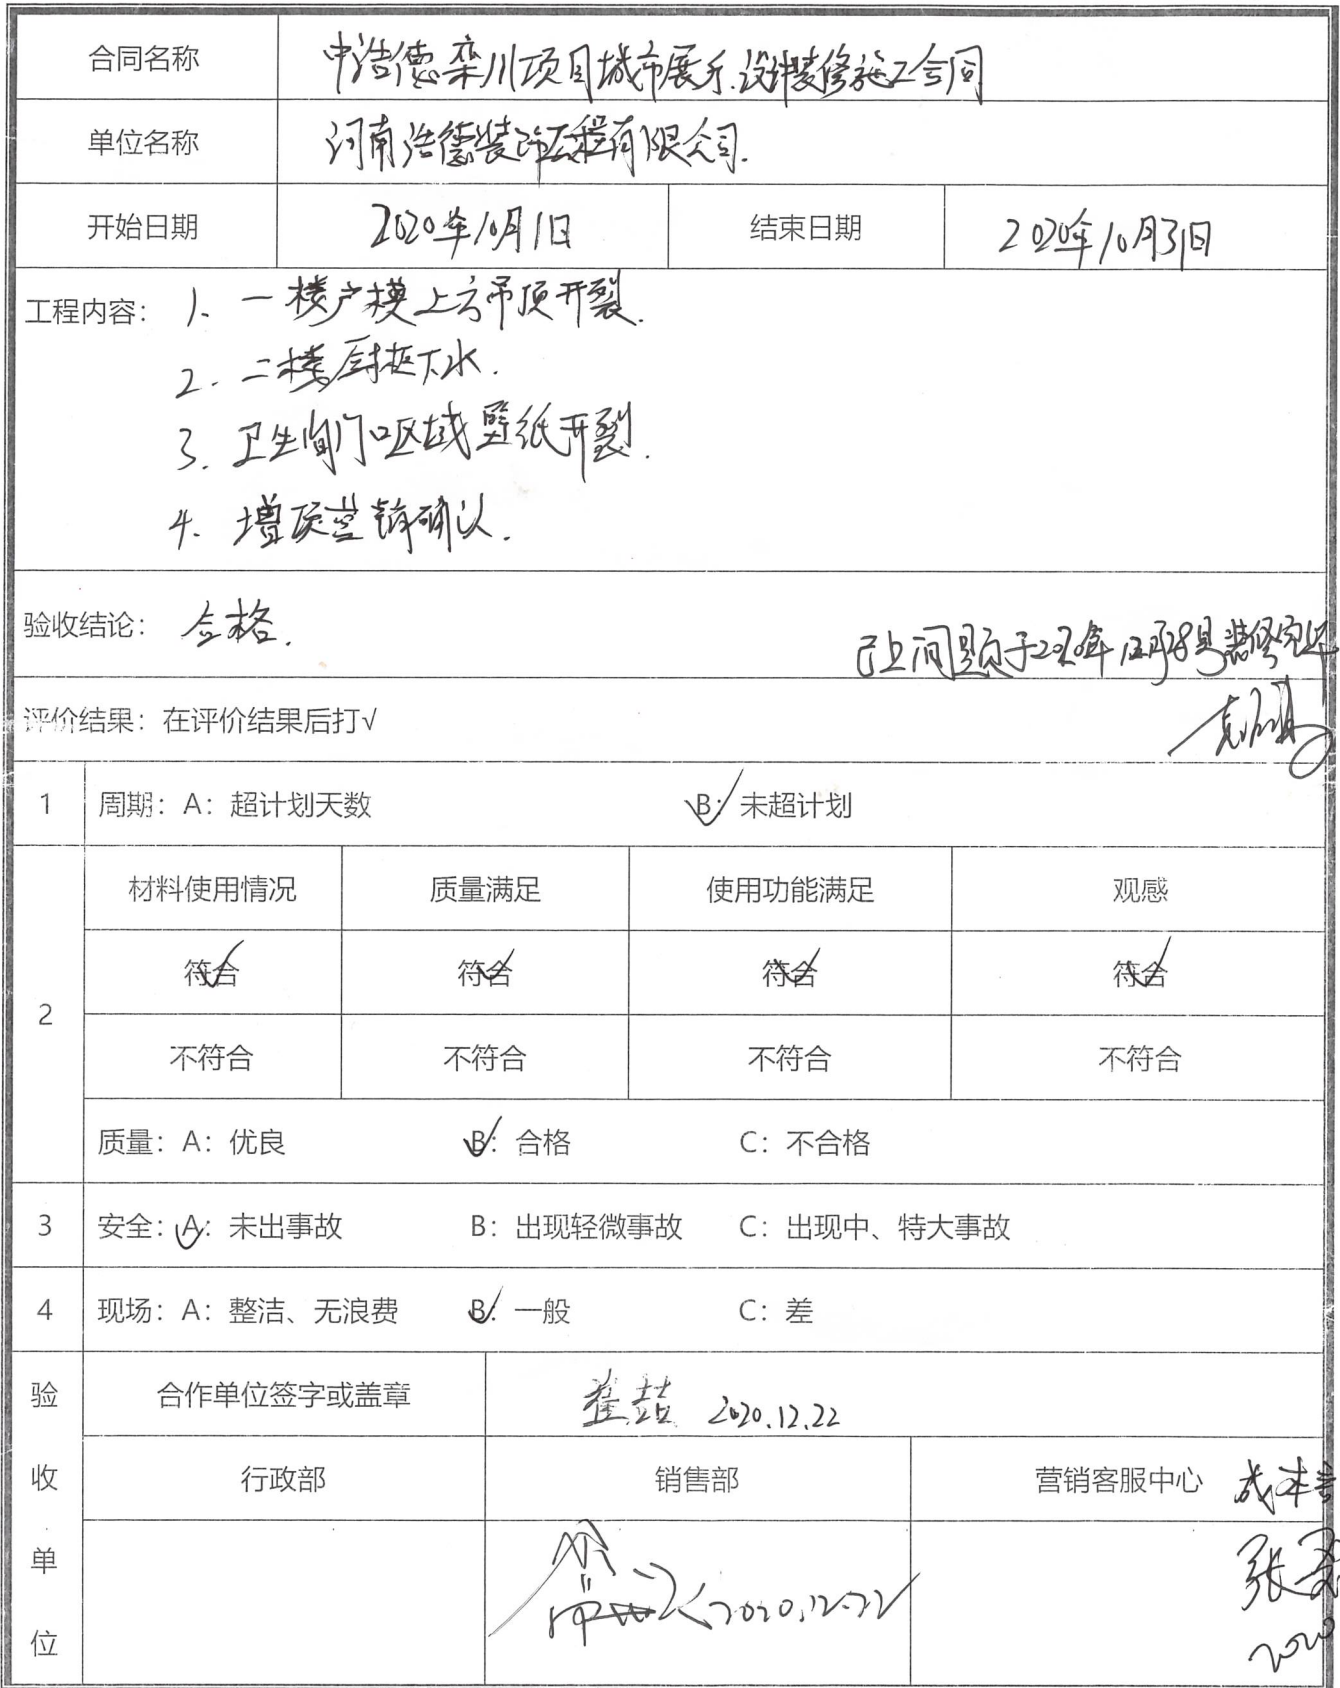 合同名称 中浩德栾川项目城市展厅设计装修施工合同
单位名称 河南浩德装饰工程有限公司.
开始日期 2020年10月1日 结束日期 2020年10月31日
工程内容： 1、一楼户模上方吊顶开裂.
2、二楼厨柜下水.
3、卫生间门口区域壁纸开裂.
4、增项营销确认.
验收结论： 合格.
已上问题于2020年12月28号装修完毕
评价结果：在评价结果后打√
1 周期：A：超计划天数 B：√ 未超计划
材料使用情况 质量满足 使用功能满足 观感
符合√ 符合√ 符合√ 符合√
2
不符合 不符合 不符合 不符合
质量：A：优良 B：√ 合格 C：不合格
3 安全：A：√ 未出事故 B：出现轻微事故 C：出现中、特大事故
4 现场：A：整洁、无浪费 B：√ 一般 C：差
验收单位
合作单位签字或盖章 崔喆 2020.12.22
行政部 销售部 营销客服中心 成本
2020.12.22 张
2020